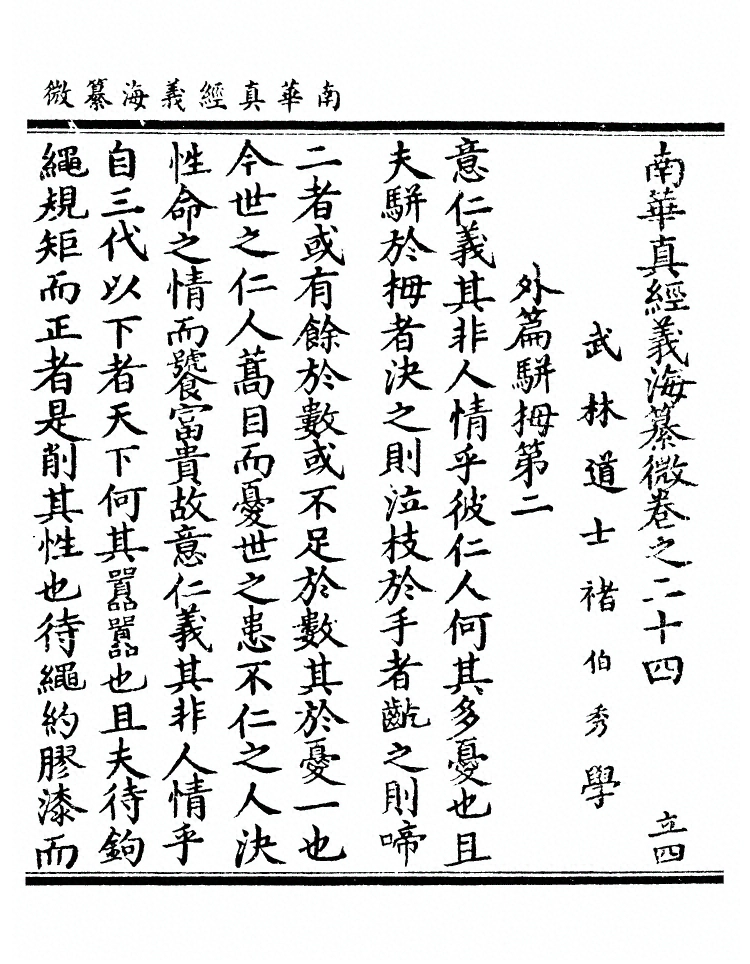 南華真經義海纂微
南華真經義海纂微卷之二十四 立四
武林道士褚伯秀學
外篇駢拇第二
意仁義其非人情乎彼仁人何其多憂也且
夫駢於拇者決之則泣枝於手者齕之則啼
二者或有餘於數或不足於數其於憂一也
今世之仁人蒿目而憂世之患不仁之人決
性命之情而饕富貴故意仁義其非人情乎
自三代以下者天下何其囂囂也且夫待鉤
繩規矩而正者是削其性也待繩約膠漆而